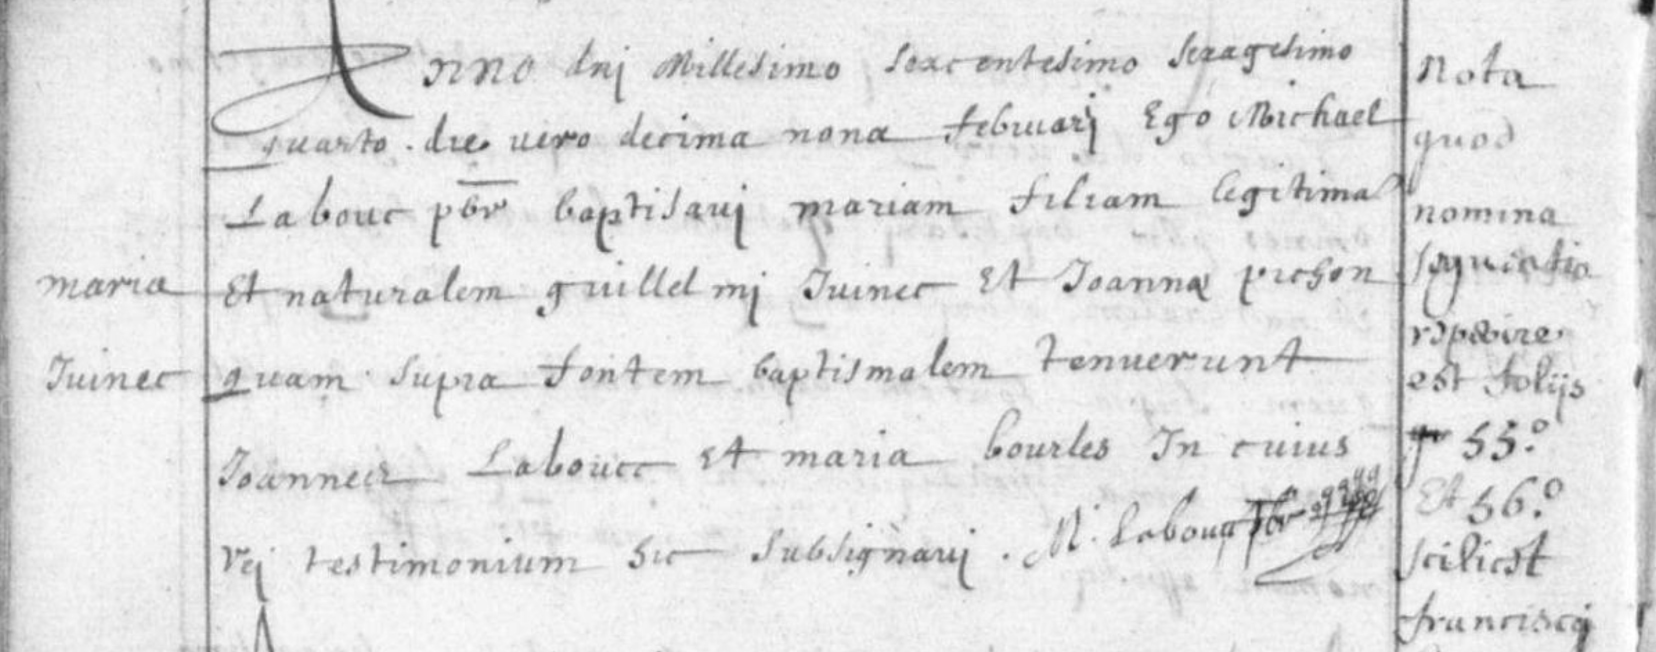 Anno dnj Millesimo sexcentesimo sexagesimo
quarto. die vero decima nona februarj Ego Michael
Labouc pbr baptisauj mariam filiam legitima
Et naturalem guillelmj Iuinec Et Joannæ pichon
quam supra fontem baptismalem tenuerunt
Joannes Laboucc Et maria bourles In cuius
rej testimonium hic subsignauj. M. Labouc pbr
maria
Iuinec
Nota
quod
nomina
sequentia
est folijs
55.º
Et 56.º
scilicet
franciscj